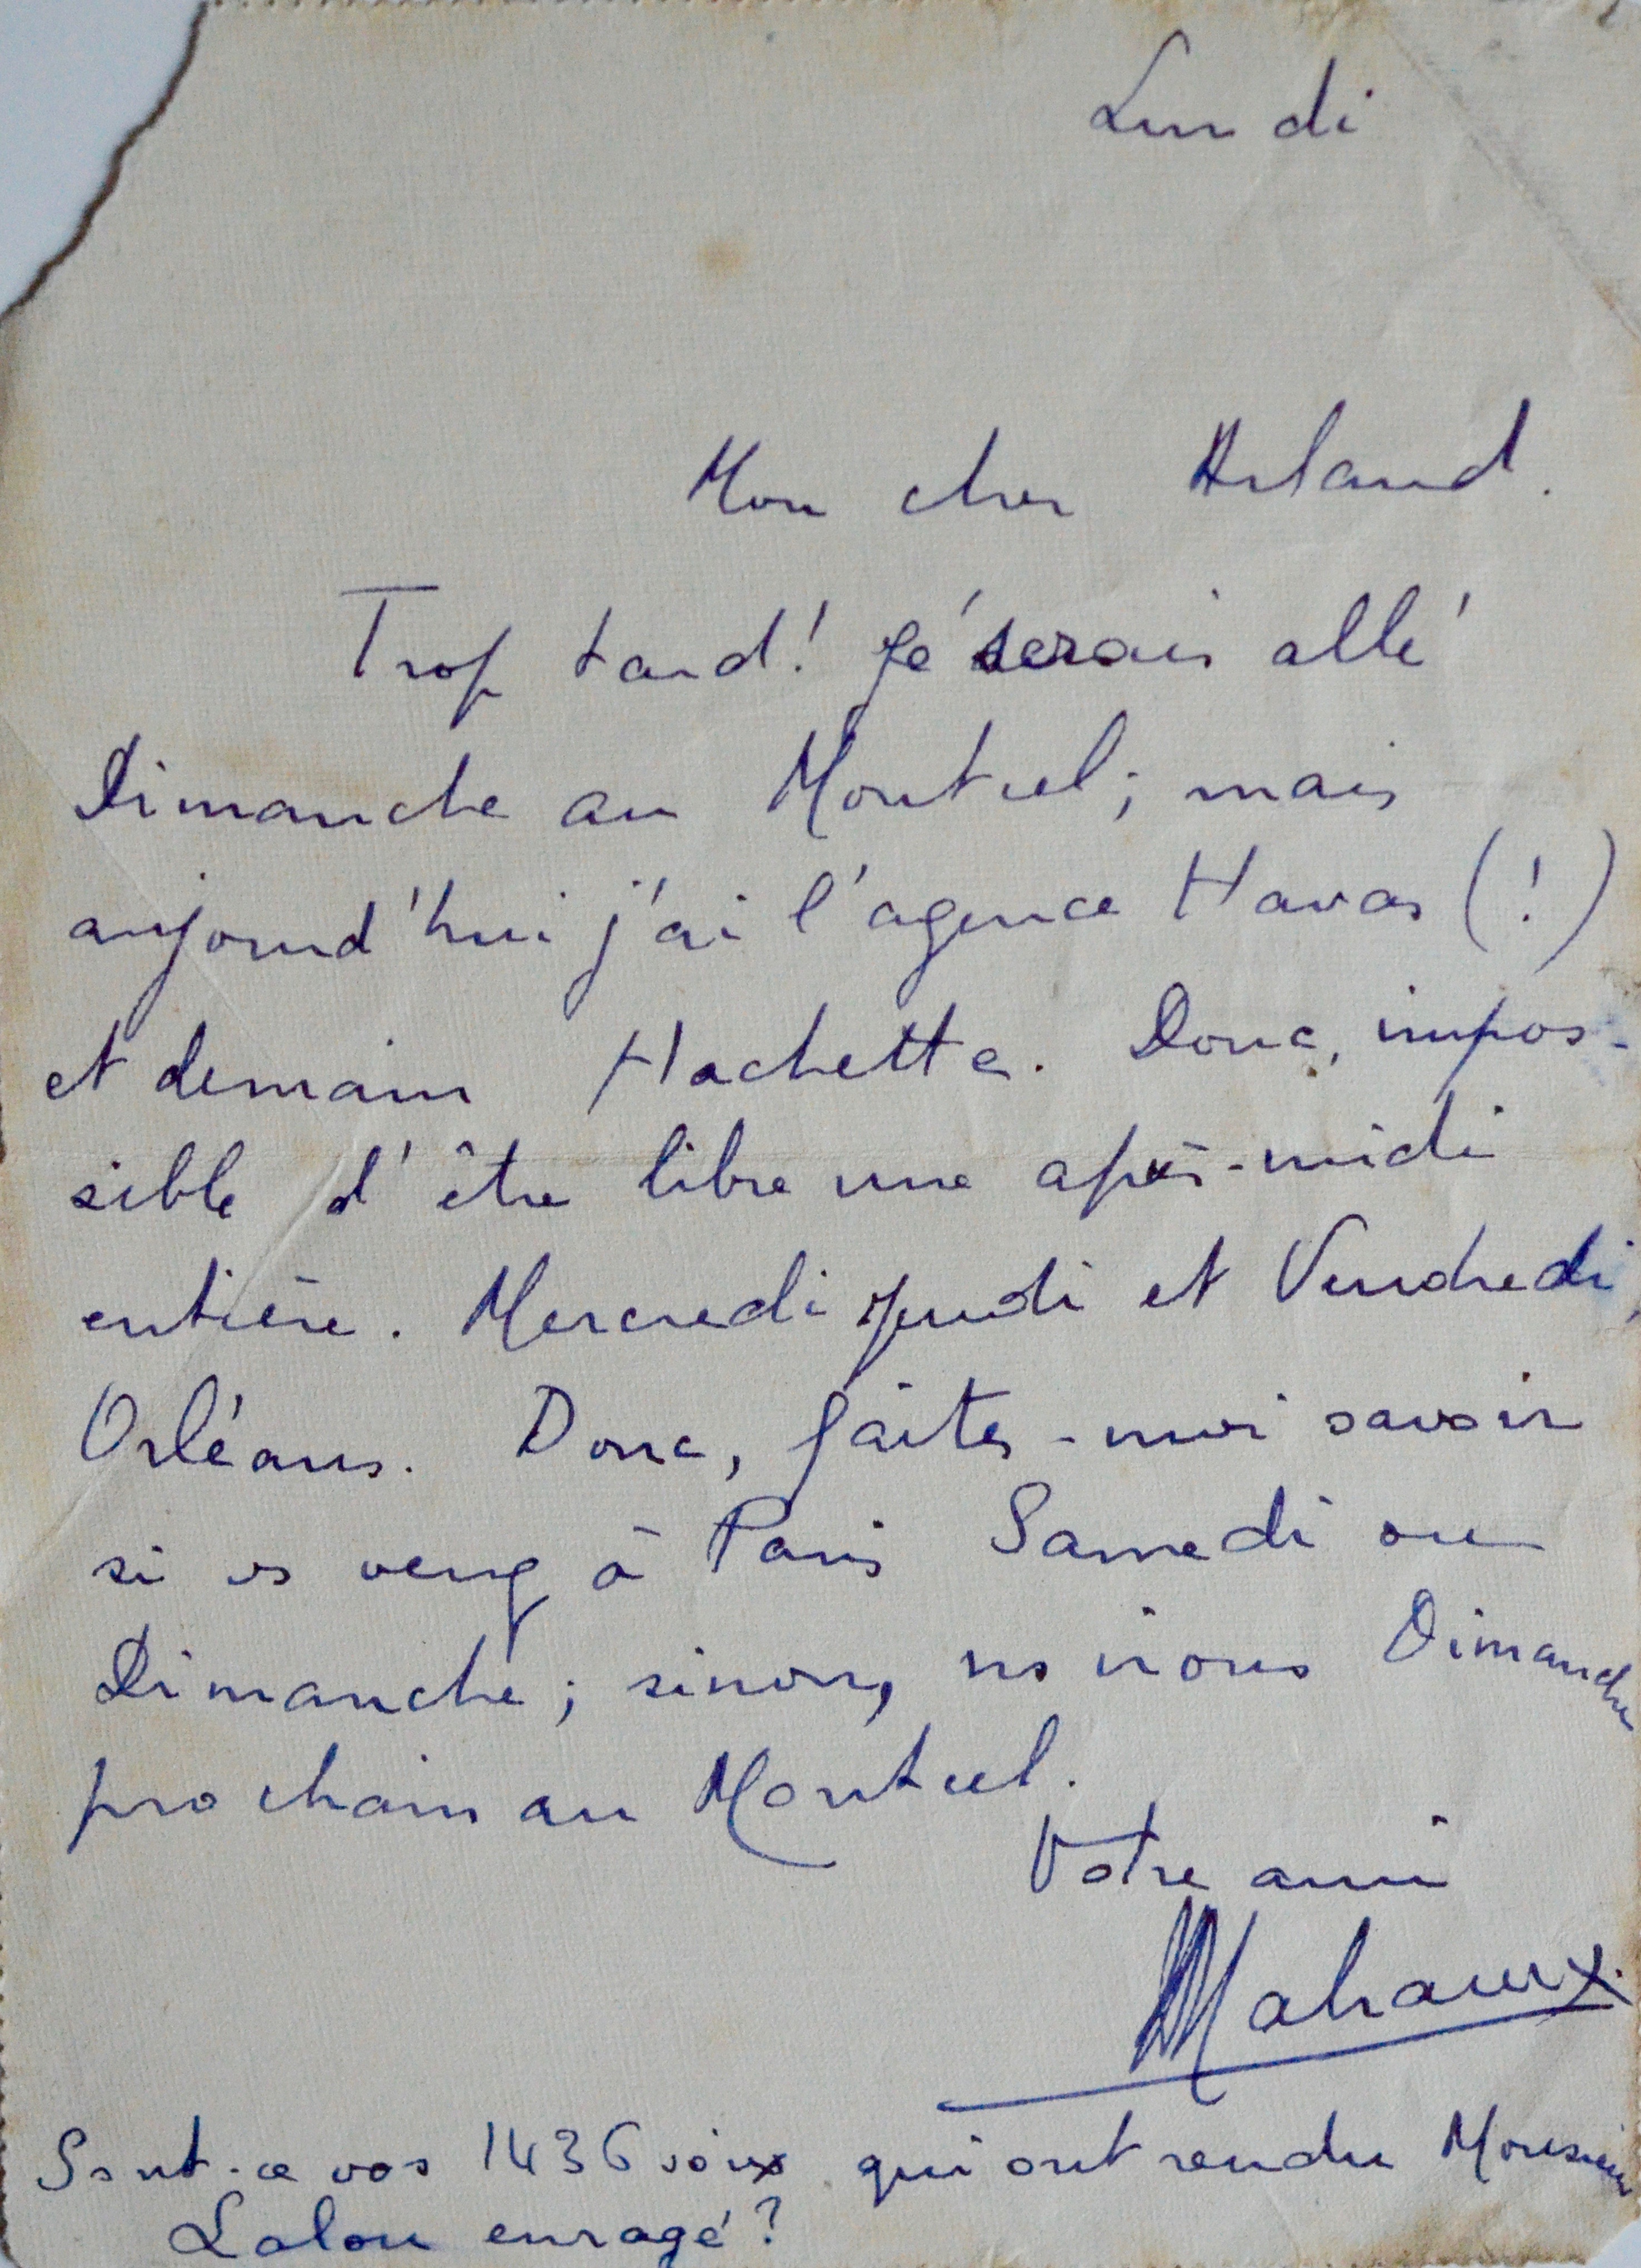 Lundi
Mon cher Arland.
Trop tard! Je serais allé
Dimanche au Montcel; mais
aujourd'hui j'ai l'agence Havas (!)
et demain Hachette. Donc, impos-
sible d'être libre une après-midi
entière. Mercredi Jeudi et Vendredi,
Orléans. Donc, faites-moi savoir
si vs venez à Paris Samedi ou
Dimanche; sinon, ns irons Dimanche
prochain au Montcel.
Votre ami
Malraux.
Sont-ce vos 1436 voix qui ont rendu Monsieur
Lalou enragé?